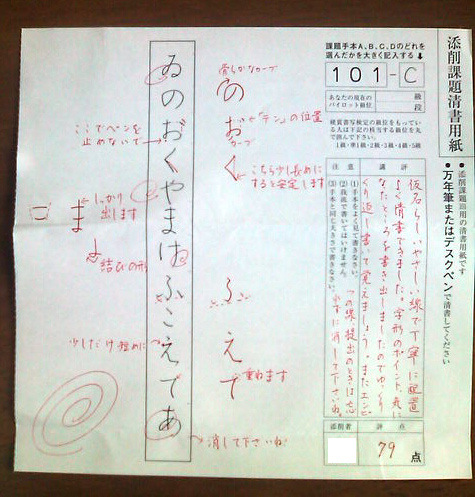 添削課題清書用紙
●添削課題専用の清書用紙です
●万年筆またはデスクペンで清書してください
課題手本A、B、C、Dのどれを
選んだかを大きく記入する↓
101-C
あなたの現在の
パイロット級位
級
段
硬筆書写検定の級位をもってい
る人は下記の該当する級位を丸
で囲んで下さい。
1級・準1級・2級・3級・4級・5級
講評
仮名らしいやさしい線で丁寧に配置
よく清書できました。字形のポイント、気に
なったところを書き出しましたのでゆっくり
くり返し書いて覚えましょう。またエンピ
ツの線、提出のときは忘
れずに消して下さいね。
注意
(1)手本をよく見て書きなさい。
(2)我流で書いてはいけません。
(3)手本と同じ大きさで書きなさい。
評点
79点
添削者
滑らかなカーブ
の
お
「テン」の位置
カーブ
く
こちら少し長めに
すると安定します
ふ
え
て
重ねます
消して下さいね
ゐのおくやまけふこえてあ
ここでペンを
止めないで
ま
しっかり
出します
結びの形
少しだけ短めに